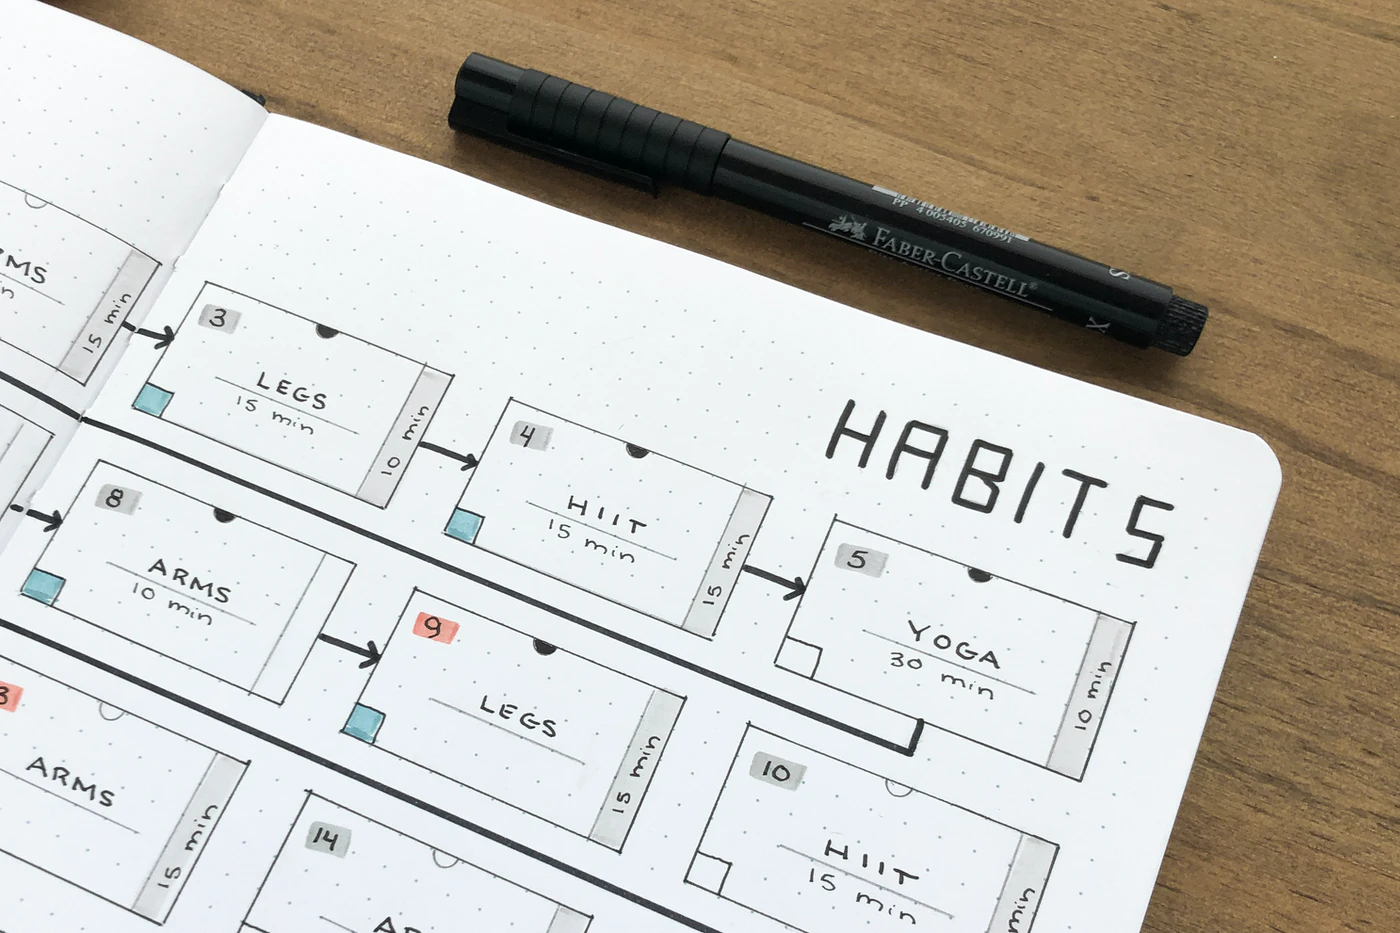 PP 4 005405 670991
FABER-CASTELL®
S
X
HABITS
15 min
3
LEGS
15 min
10 min
4
HIIT
15 min
15 min
5
YOGA
30 min
10 min
8
ARMS
10 min
9
LEGS
15 min
10
HIIT
15 min
min
ARMS
15 min
14